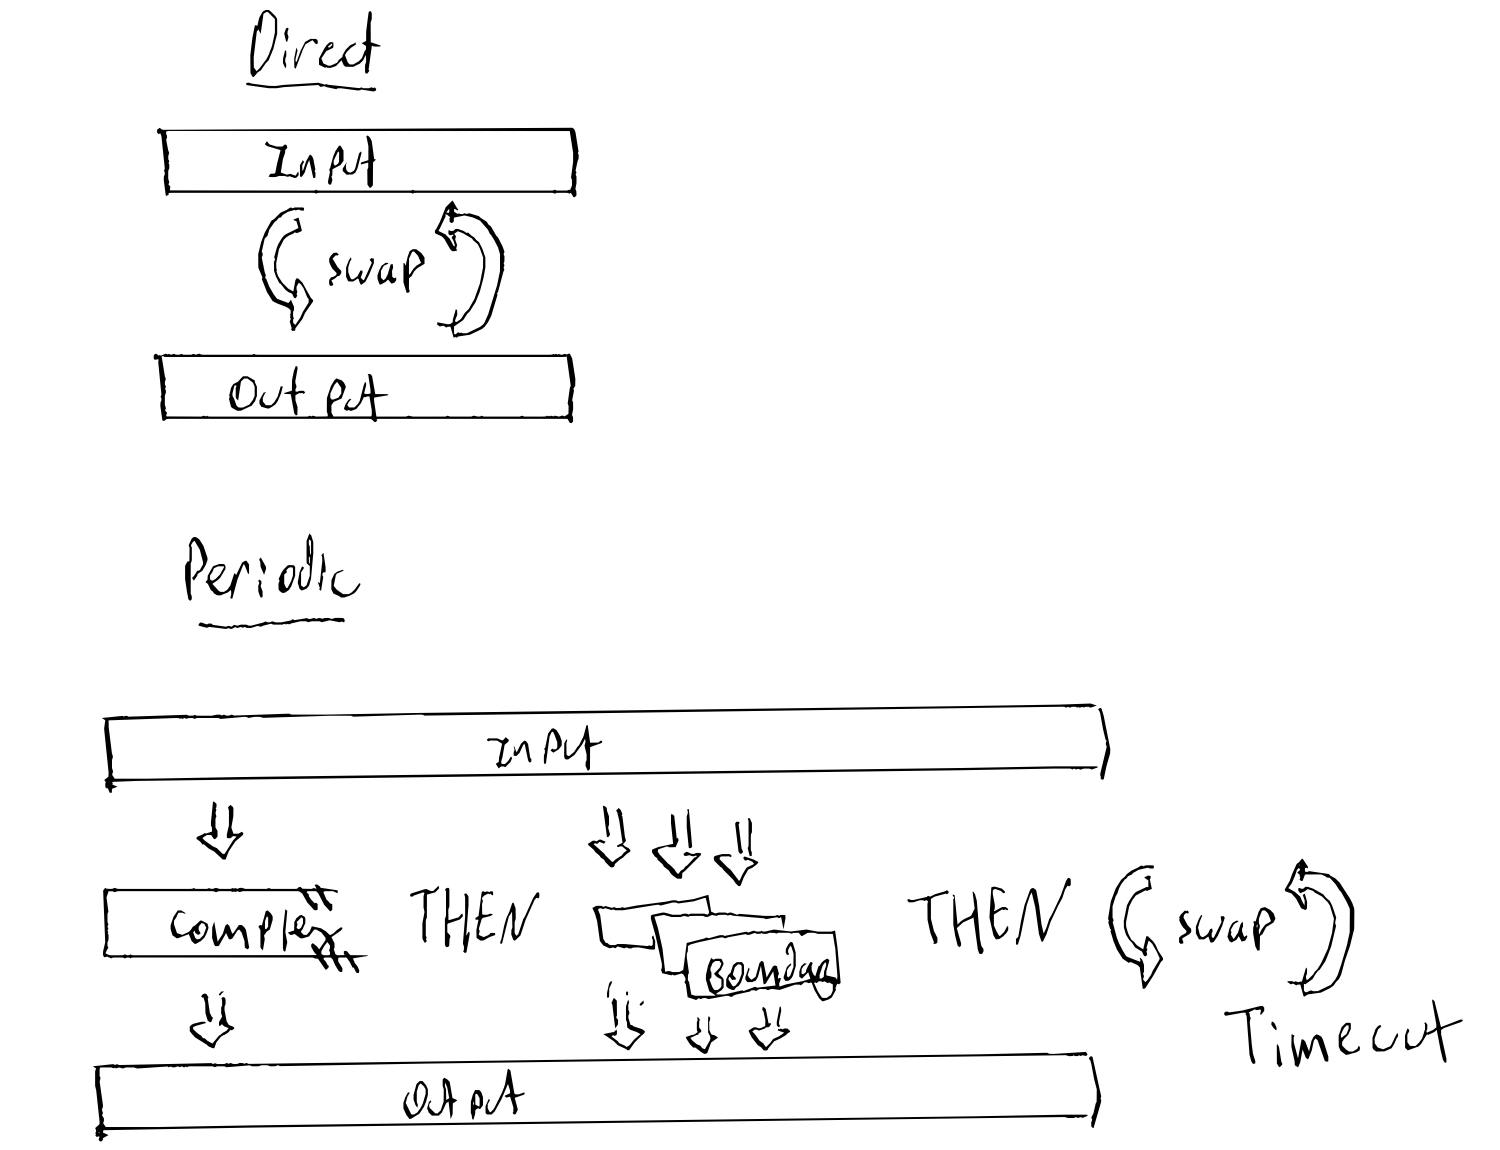 Direct
Input
swap
Output
Periodic
Input
Complex THEN Boundary THEN swap
Timeout
Output